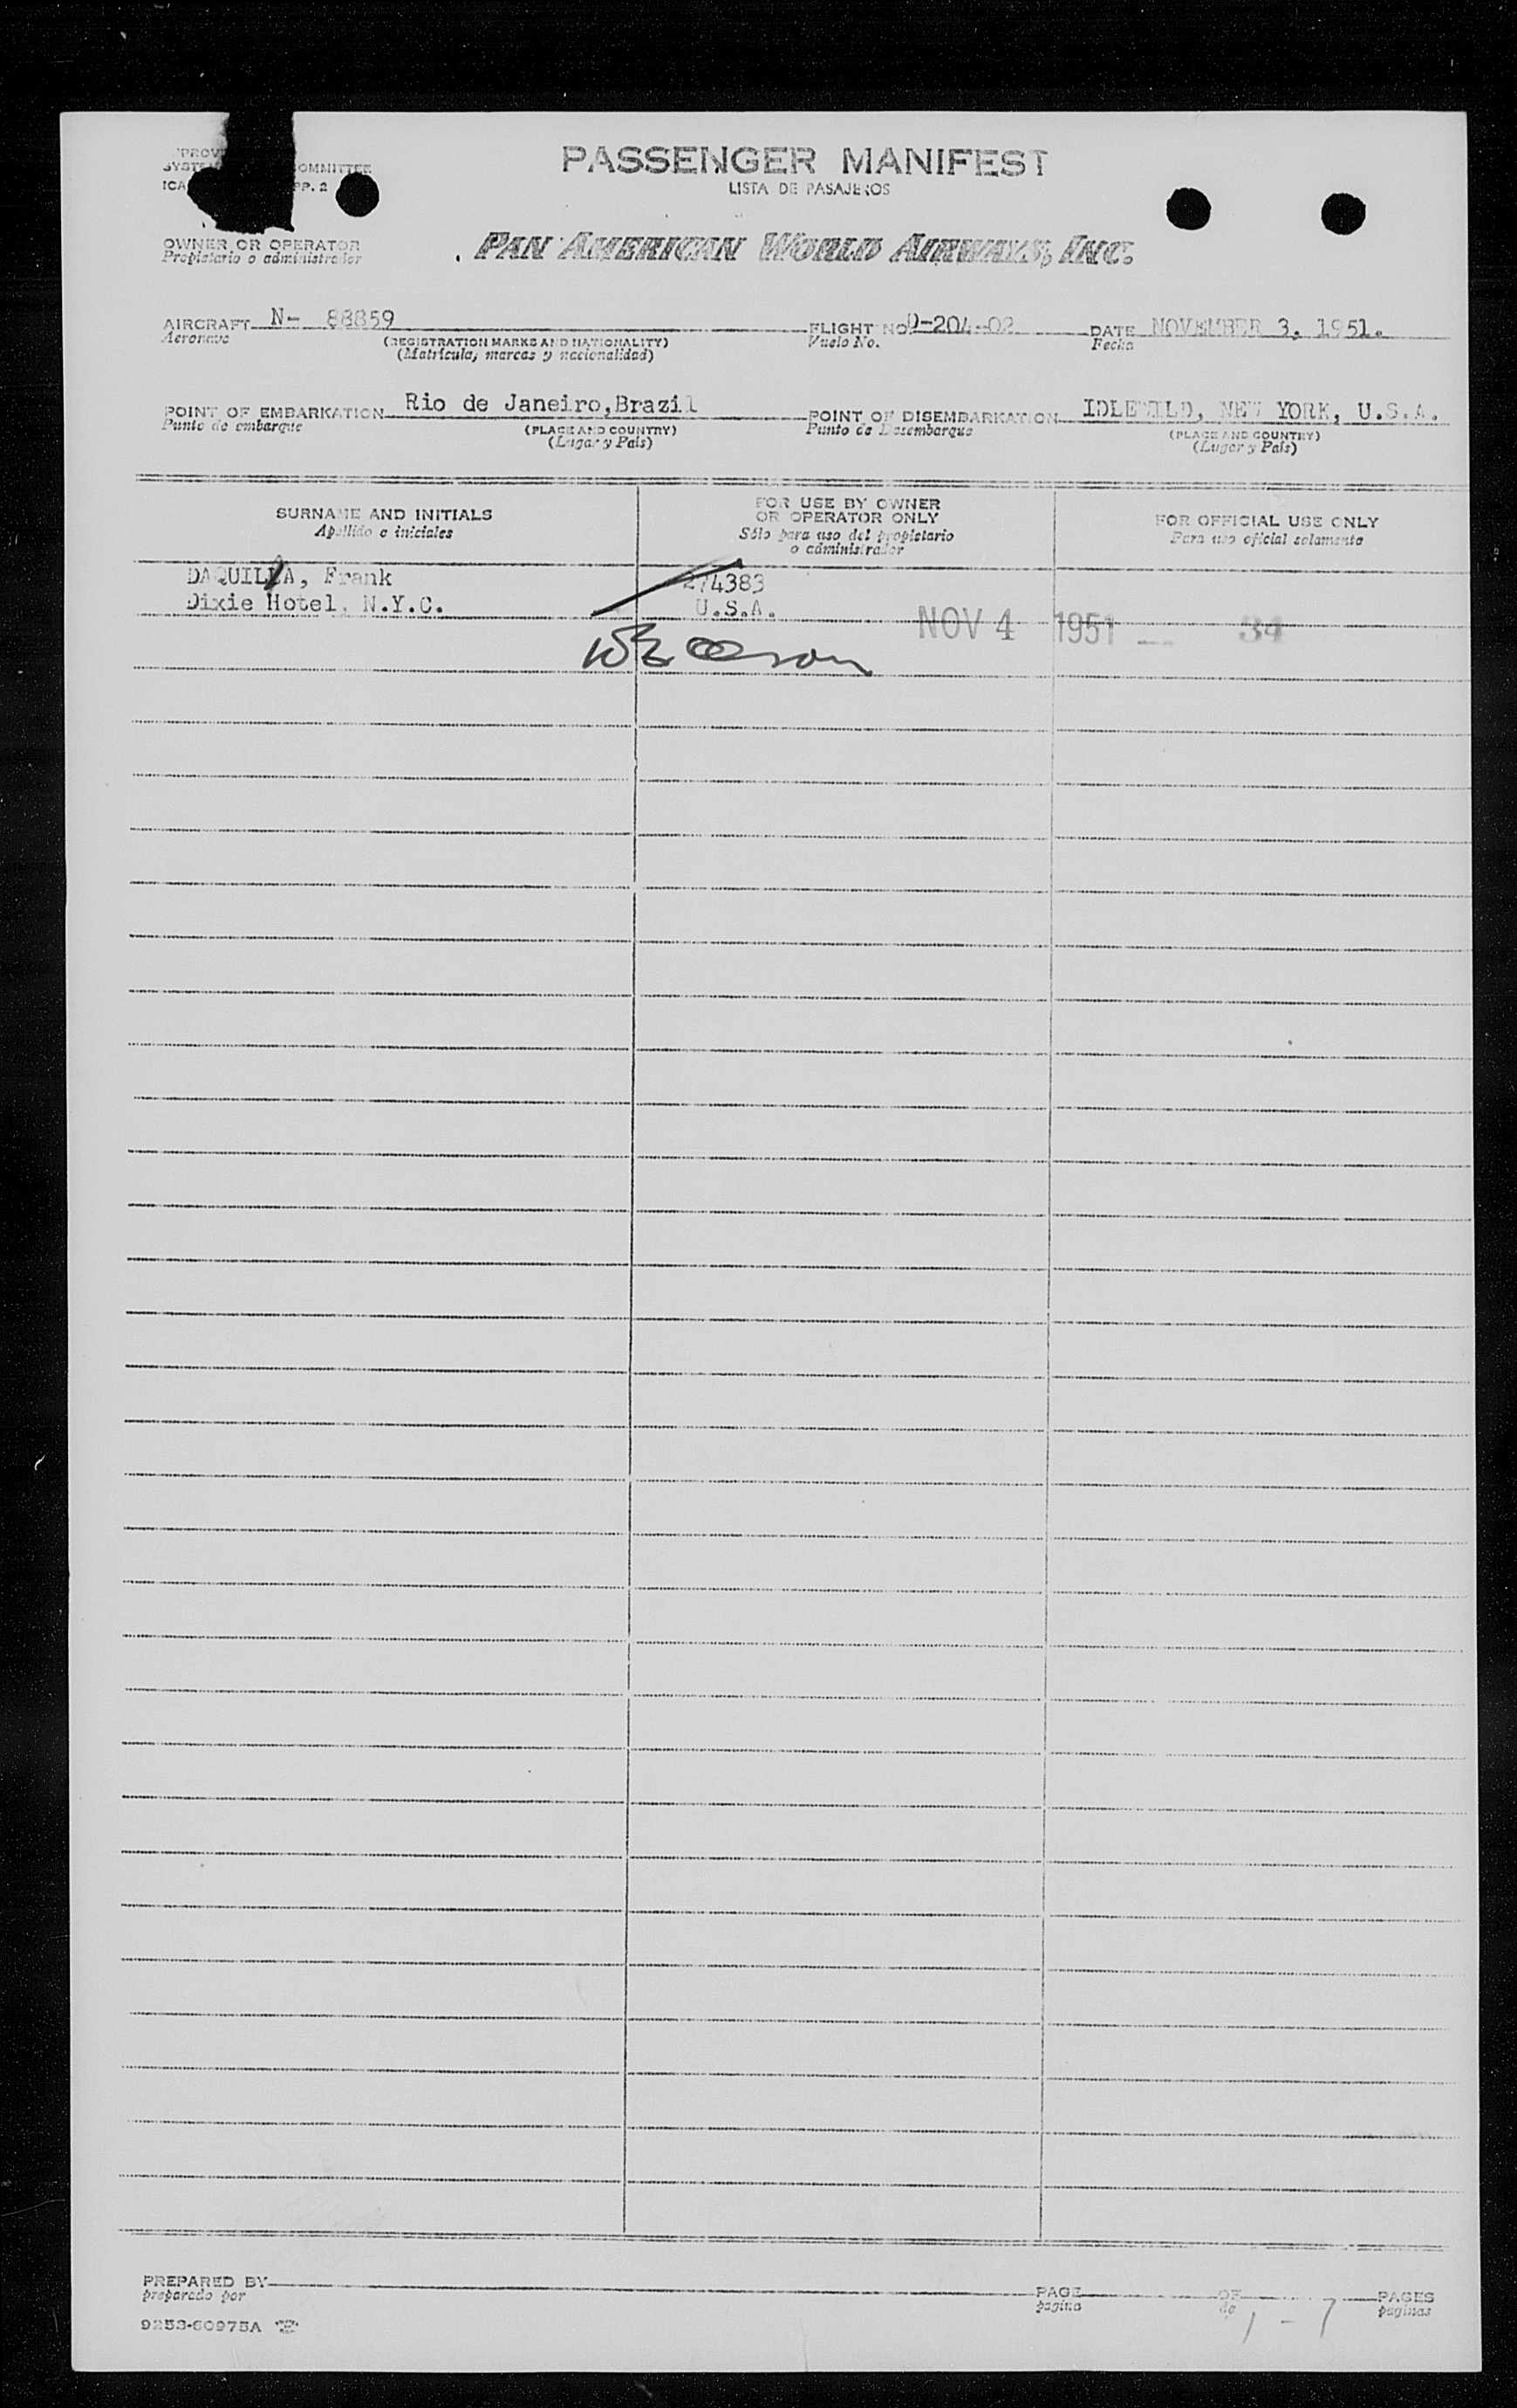 PASSENGER MANIFEST
LISTA DE PASAJEROS
OMMITTEE
ICA PP. 2
OWNER OR OPERATOR
Propietario o administrador
PAN AMERICAN WORLD AIRWAYS, INC.
AIRCRAFT N- 88859 FLIGHT NO D-204-02 DATE NOVEMBER 3, 1951.
Aeronave (REGISTRATION MARKS AND NATIONALITY) Vuelo No. Fecha
(Matrícula, marcas y nacionalidad)
POINT OF EMBARKATION Rio de Janeiro, Brazil POINT OF DISEMBARKATION IDLEWILD, NEW YORK, U.S.A.
Punto de embarque (PLACE AND COUNTRY) Punto de Desembarque (PLACE AND COUNTRY)
(Lugar y País) (Lugar y País)
SURNAME AND INITIALS
Apellido e iniciales
FOR USE BY OWNER
OR OPERATOR ONLY
Sólo para uso del propietario
o administrador
FOR OFFICIAL USE ONLY
Para uso oficial solamente
DAQUILLA, Frank 274383
Dixie Hotel, N.Y.C. U.S.A.
NOV 4 1951 — 34
PREPARED BY PAGE OF PAGES
preparado por página de páginas
1 - 7
9253-60975A